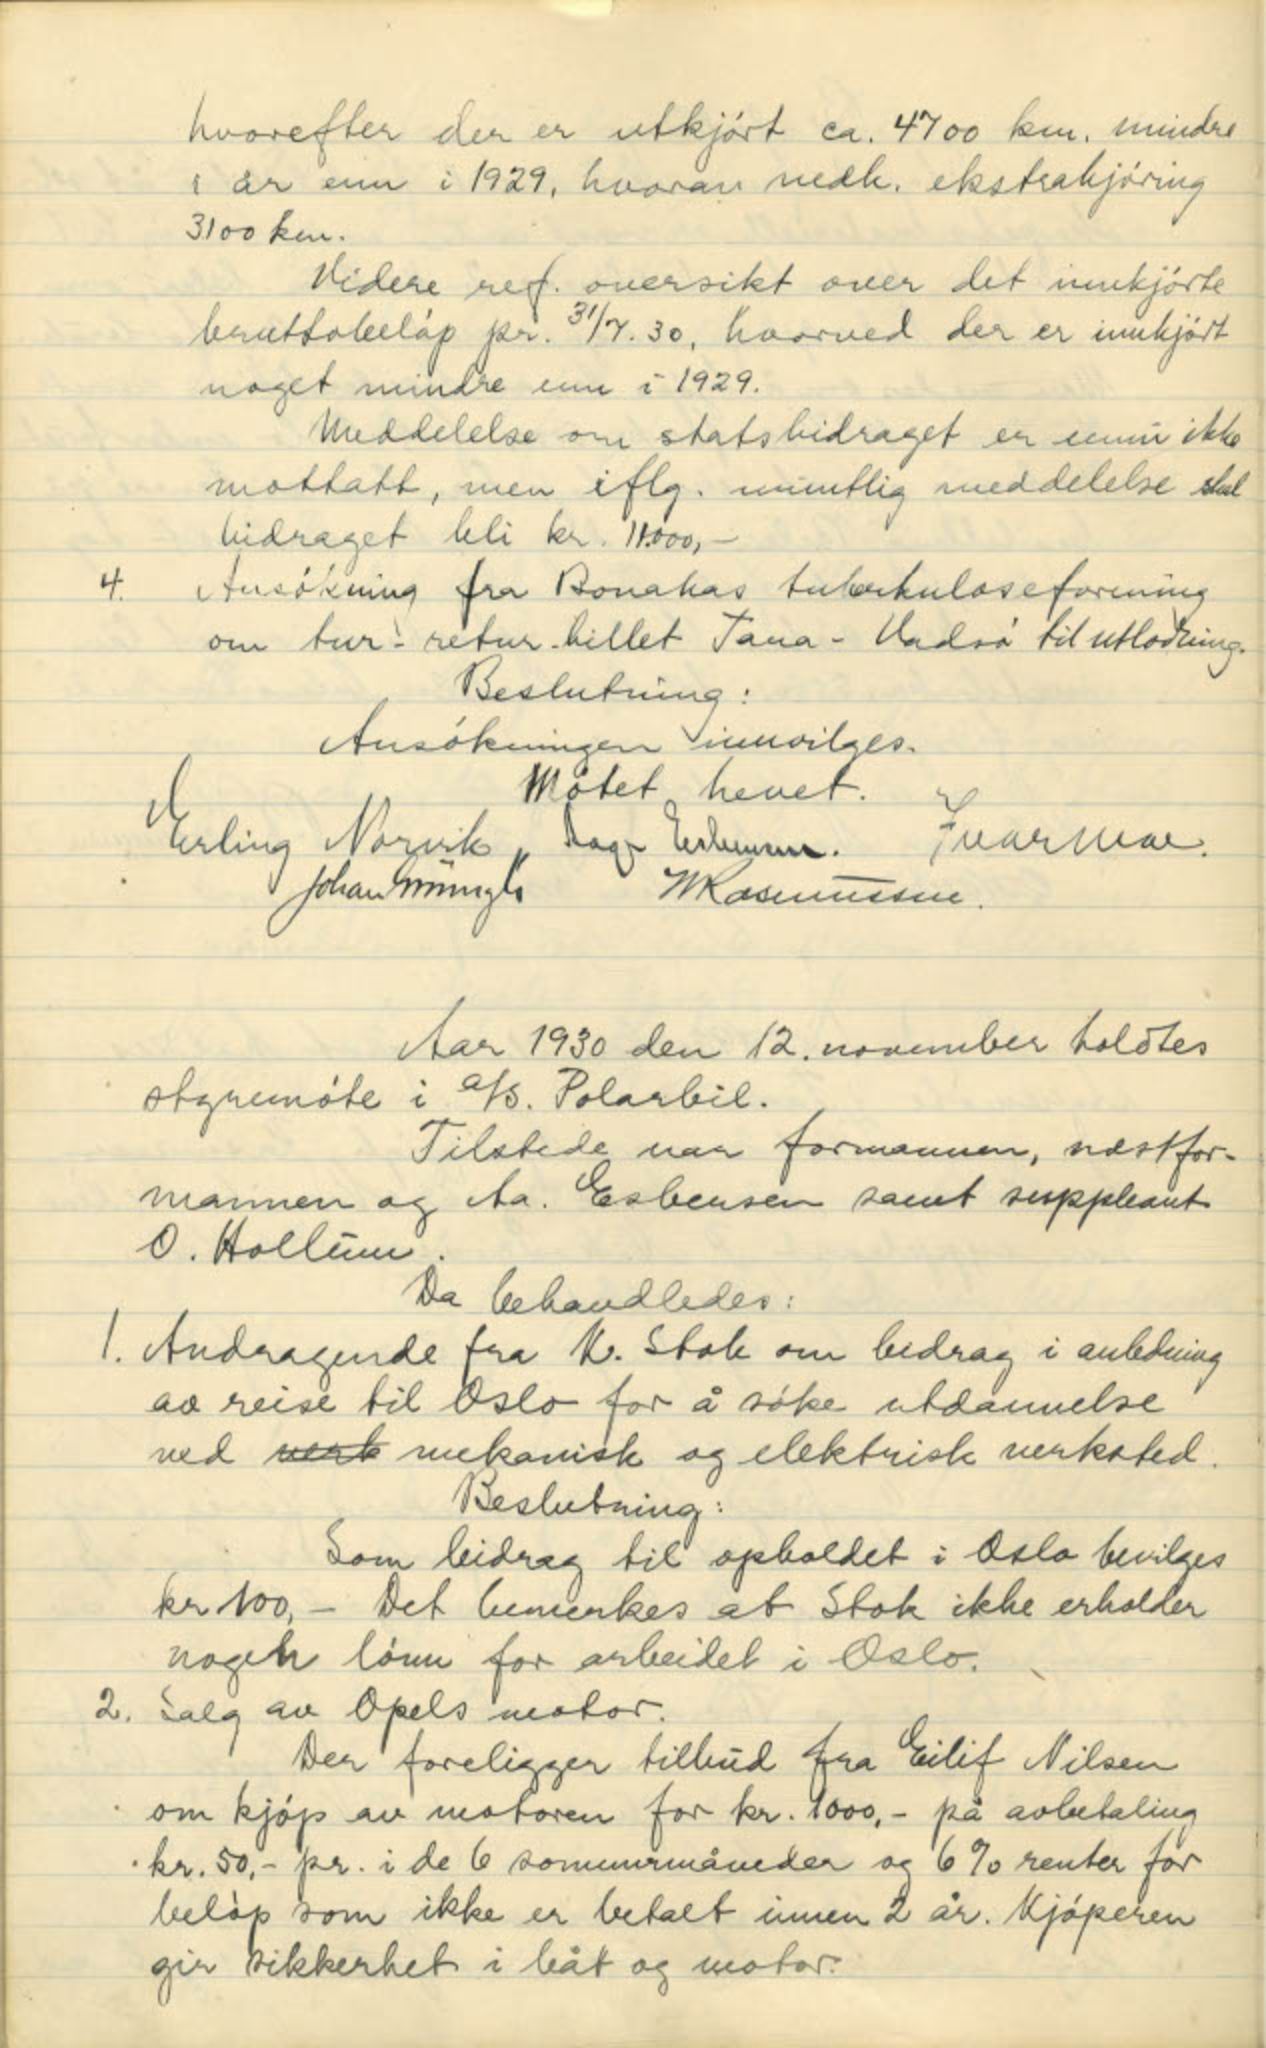 hvorefter der er utkjørt ca. 4700 km. mindre
i år enn i 1929, hvorav nedk. ekstrakjøring
3100 km.
Videre ref. oversikt over det innkjørte
bruttobeløp pr. 31/7.30, hvorved der er innkjørt
noget mindre enn i 1929.
Meddelelse om statsbidraget er ennu ikke
mottatt, men iflg. muntlig meddelelse skal
bidraget bli kr. 11.000,-
4. Ansøkning fra Bonakas tuberkuloseforening
om tur-retur-billet Tana - Vadsø til utlodning.
Beslutning:
Ansøkningen innvilges.
Møtet hevet.
Erling Norvik Aage Esbensen. Ivar Moe.
Johan Rasmussen.
Aar 1930 den 12. november holdtes
styremøte i a/s. Polarbil.
Tilstede var formannen, næstfor-
mannen og Aa. Esbensen samt suppleant
O. Hollum.
Da behandledes:
1. Andragende fra K. Stok om bidrag i anledning
av reise til Oslo for å søke utdannelse
ved verk mekanisk og elektrisk verksted.
Beslutning:
Som bidrag til opholdet i Oslo bevilges
kr 100,- Det bemerkes at Stok ikke erholder
nogen lønn for arbeidet i Oslo.
2. Salg av Opels motor.
Der foreligger tilbud fra Eilif Nilsen
om kjøp av motoren for kr. 1000,- på avbetaling
kr. 50,- pr. i de 6 sommermåneder og 6% renter for
beløp som ikke er betalt innen 2 år. Kjøperen
gir sikkerhet i båt og motor.